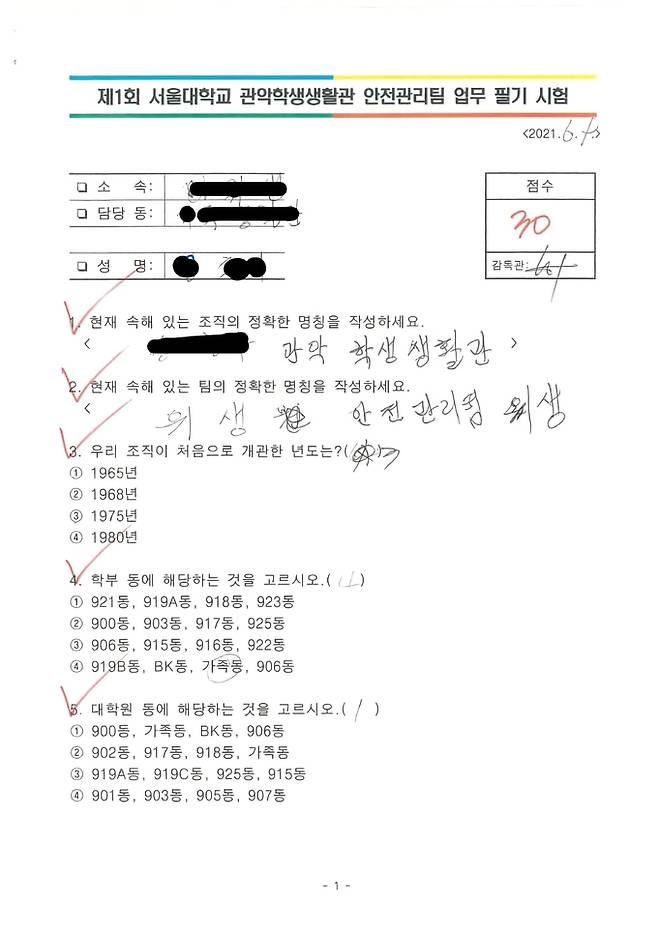 제1회 서울대학교 관악학생생활관 안전관리팀 업무 필기 시험
<2021.6. >
❏ 소 속:
❏ 담당 동:
❏ 성 명:
점수
30
감독관:
1. 현재 속해 있는 조직의 정확한 명칭을 작성하세요.
< 관악 학생생활관 >
2. 현재 속해 있는 팀의 정확한 명칭을 작성하세요.
< 위생 안전관리팀 위생
3. 우리 조직이 처음으로 개관한 년도는?( )
① 1965년
② 1968년
③ 1975년
④ 1980년
4. 학부 동에 해당하는 것을 고르시오.( )
① 921동, 919A동, 918동, 923동
② 900동, 903동, 917동, 925동
③ 906동, 915동, 916동, 922동
④ 919B동, BK동, 가족동, 906동
5. 대학원 동에 해당하는 것을 고르시오.( 1 )
① 900등, 가족동, BK동, 906동
② 902동, 917동, 918동, 가족동
③ 919A동, 919C동, 925동, 915동
④ 901동, 903동, 905동, 907동
- 1 -